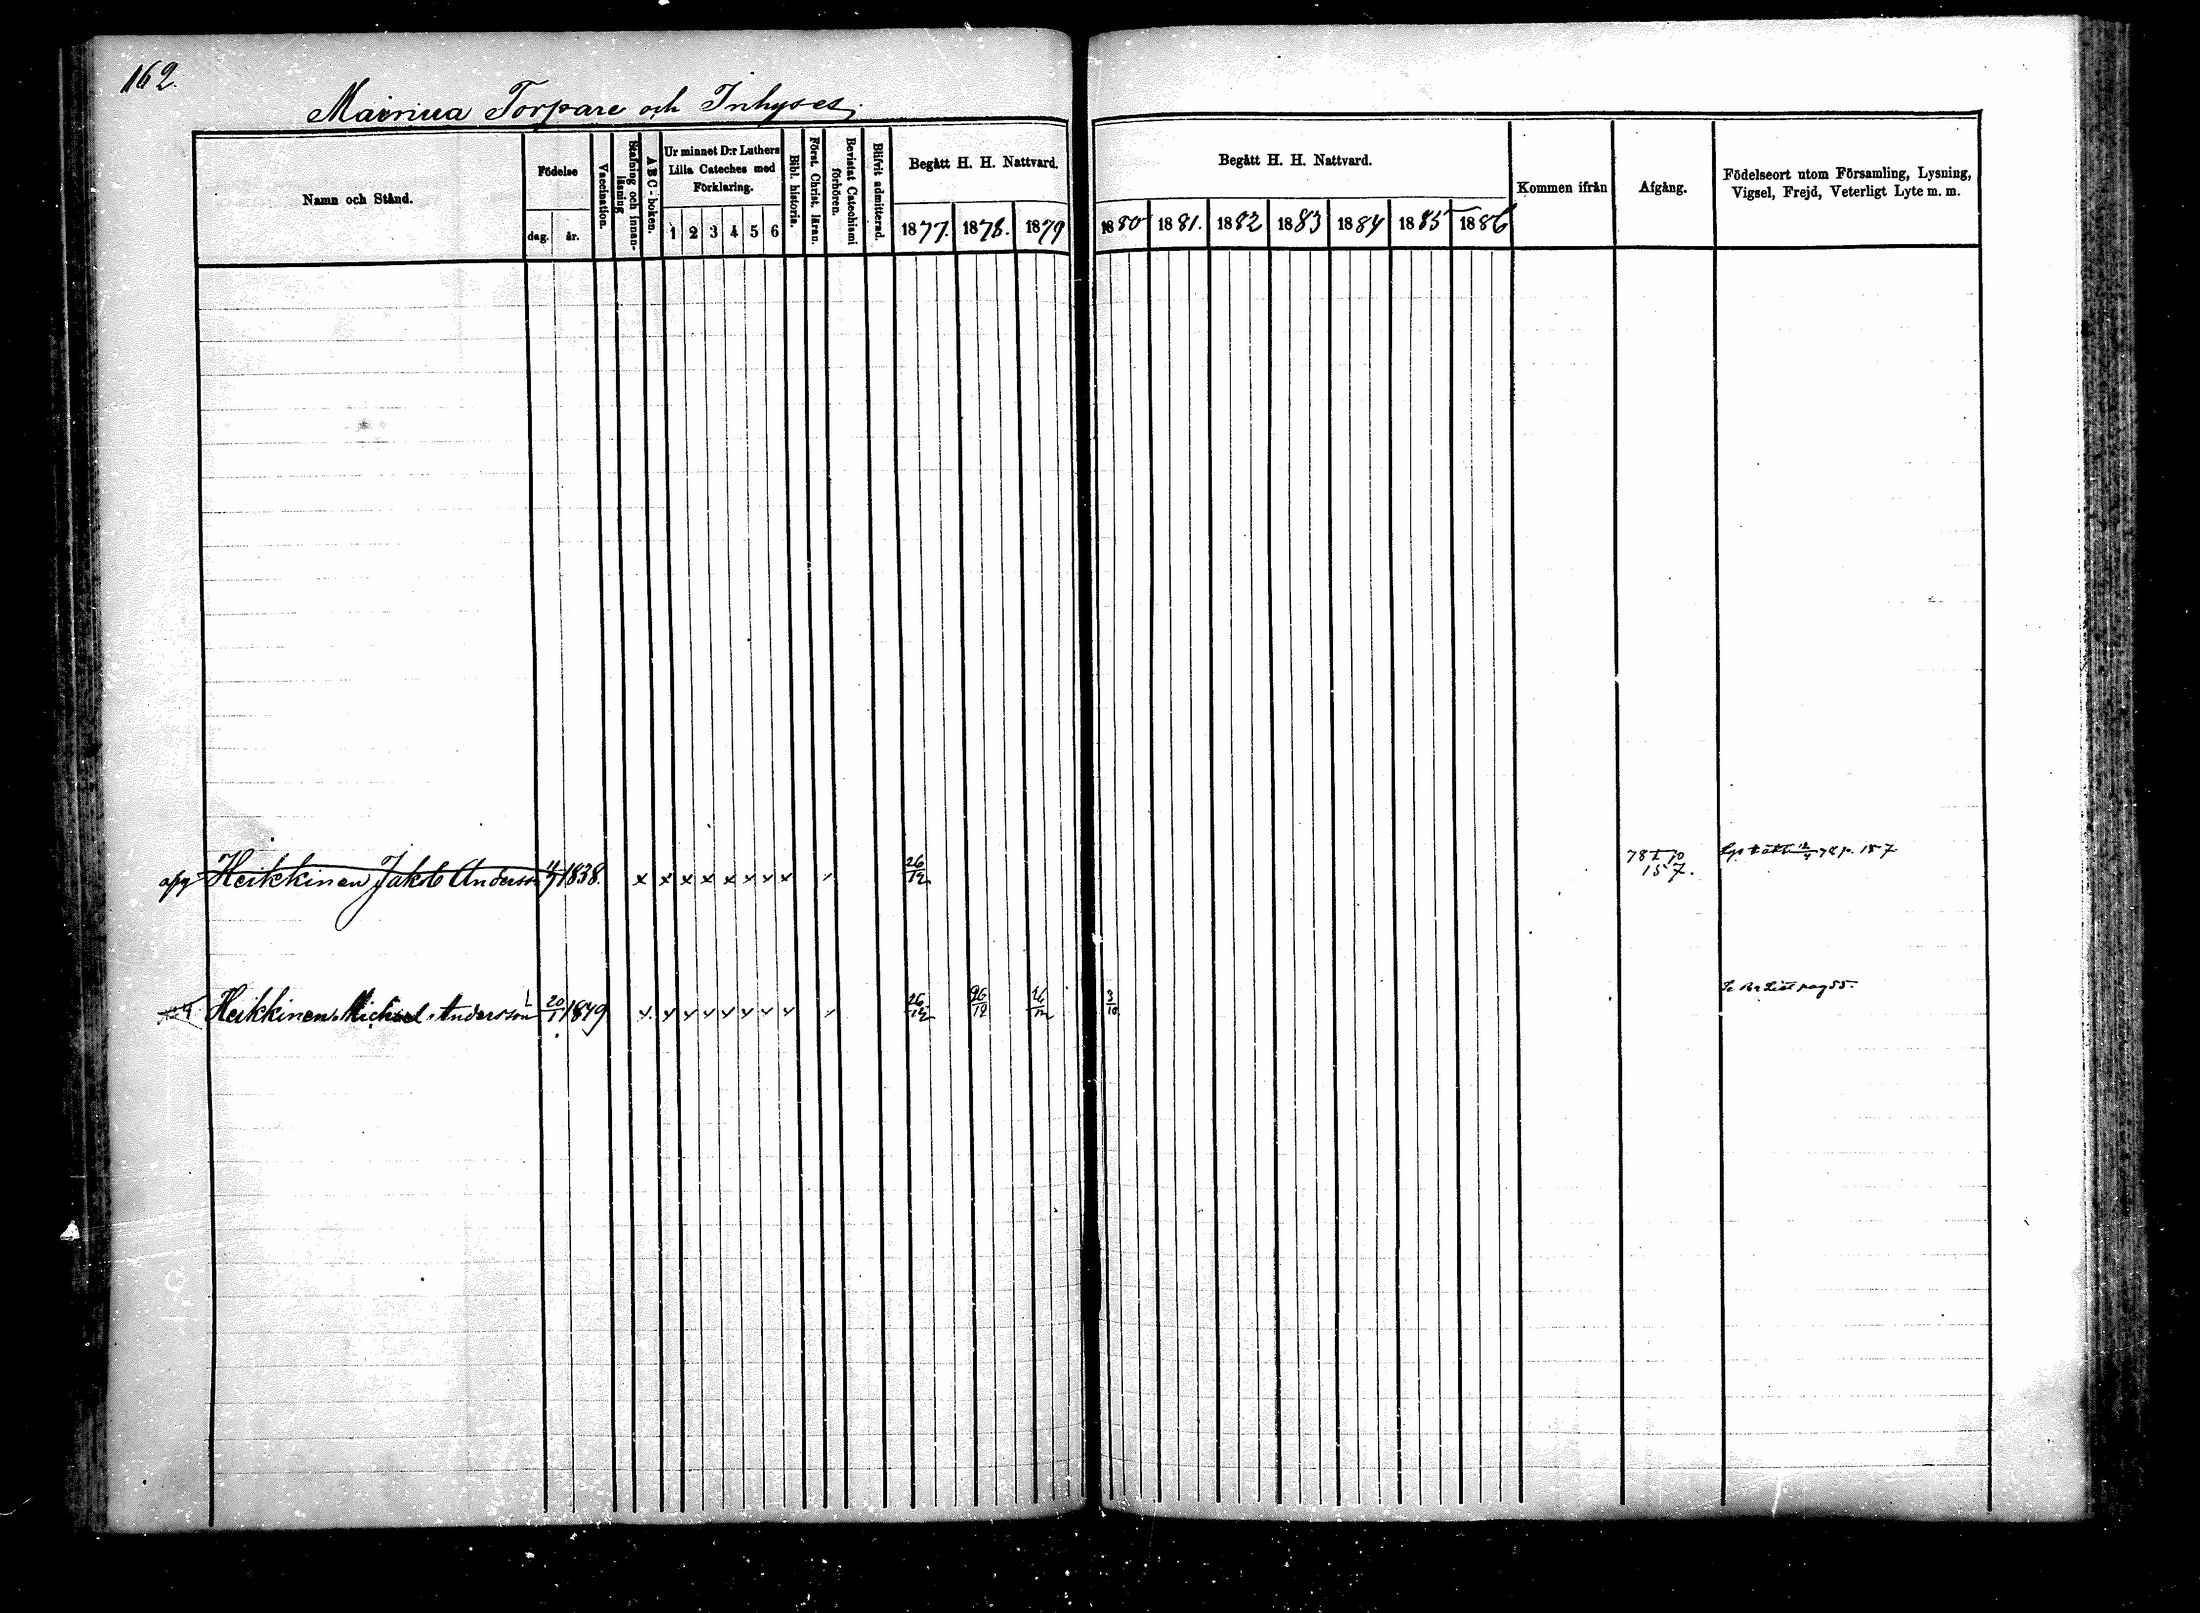 162.
Mainua Torpare och Inhyses.
Namn och Stånd.
Födelse
dag. år.
Vaccination.
Stafning och innanläsning
ABC-boken.
Ur minnet D:r Luthers
Lilla Cateches med
Förklaring.
1 2 3 4 5 6
Bibl. historia.
Först. Christ. läran.
Bevistat Catechismi
förhören.
Blifvit admitterad.
Begått H. H. Nattvard.
1877. 1878. 1879
Begått H. H. Nattvard.
1880 1881. 1882 1883 1884 1885 1886
Kommen ifrån
Afgång.
Födelseort utom Församling, Lysning,
Vigsel, Frejd, Veterligt Lyte m. m.
Heikkinen Jakob Andersson 1838. x x x x x x x x 26/12 78 10 p. 157
157.
Heikkinen Michael Andersson 20/1 1849 x x x x x x x x 26/12 26/12 26/12 3/10 pag 55.